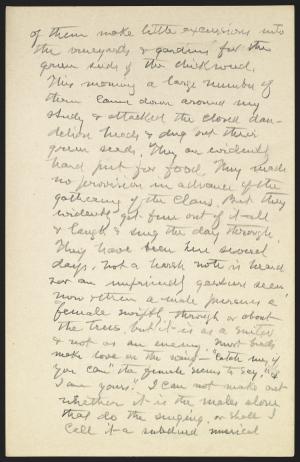 of them make little excursions into
the vineyards & gardens for the
green seeds of the chickweed.
This morning a large number of
them came down around my
study & attacked the closed dan-
delion heads & dug out their
green seeds. They are evidently
hard put for food. They made
no provision in advance of the
gathering of the Clans. But they
evidently get fun out of it all
& laugh & sing the day through.
They have been here several
days, not a harsh note is heard
nor an unfriendly gesture seen.
now & then a male pursues a
female swiftly through or about
the trees, but it is as a suitor
& not as an enemy. Most birds
make love on the wing - "Catch me if
you can" the female seems to say, "&
I am yours". I can not make out
whether it is the males alone
that do the singing, or shall I
call it a subdued musical